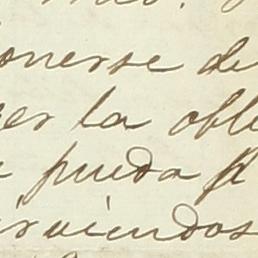 onerse de
er la obli
pueda p
irviendos